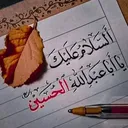 اَلسَّلامُ عَلَيْكَ
يا اَبا عَبْدِاللهِ الْحُسَيْن